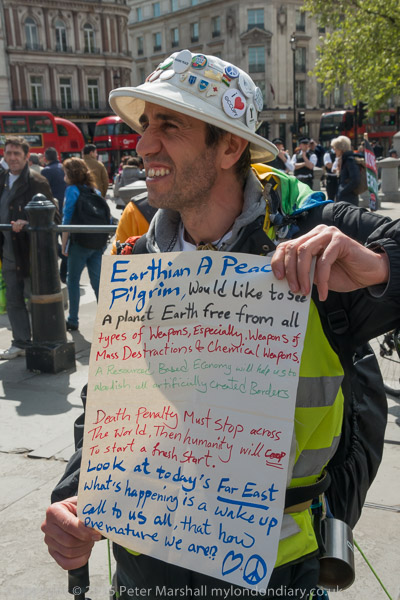 Earthian A Peac
Pilgrim, Would like to See
A planet Earth free from all
types of Weapons, Especially, Weapons of
Mass Destructions & Chemical Weapons,
A Resourced Based Economy will help us to
Abolish all artificially created Borders
Death Penalty Must stop across
The World, Then humanity will
To start a fresh start.
Look at today's Far East
What's happening is a wake up
call to us all, that how
premature we are!?
© 2015 Peter Marshall mylondondiary.co.uk